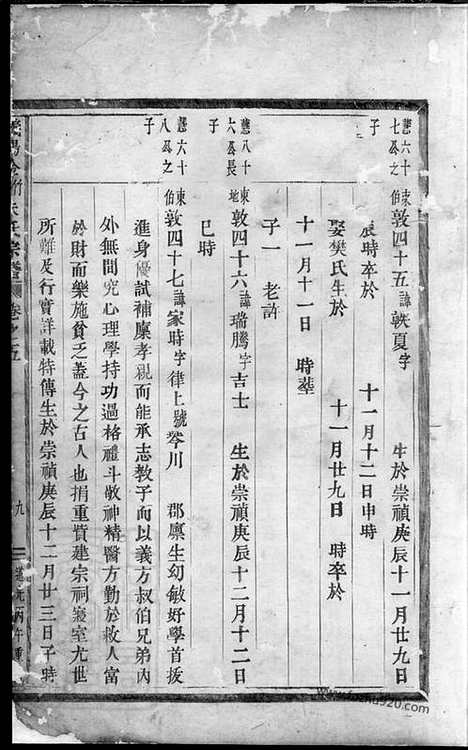 慧六十七公之子
東伯敦四十五諱軼夏字 生於崇禎庚辰十一月廿九日
辰時卒於 十一月十二日申時
娶樊氏生於 十一月廿九日 時卒於
十一月十一日 時塟
子一 老許
慧八十六公長子
東地敦四十六諱瑞騰字吉士 生於崇禎庚辰十二月十二日
巳時
慧六十八公之子
東伯敦四十七諱家時字律上號琴川 郡廩生幼敏好學首拔
進身優試補廩孝親而能承志教子而以義方叔伯兄弟內
外無間究心理學持功過格禮斗敬神精醫方勤於救人富
於財而樂施貧乏蓋今之古人也捐重貲建宗祠寢室尤世
所難及行實詳載特傳生於崇禎庚辰十二月廿三日子時
宗譜 卷之五 九 道光丙午重